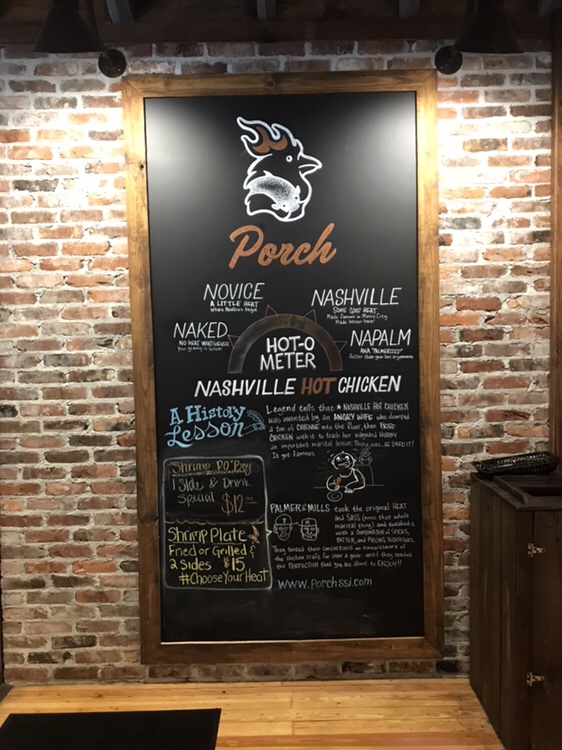 Porch
NOVICE
A LITTLE HEAT
Where Newbies begin
NASHVILLE
SOME GOOD HEAT.
Made famous in Music City.
Made better here!
NAKED
NO HEAT WHATSOEVER
NAPALM
AKA "PALMERIZED"
HOT-O
METER
NASHVILLE HOT CHICKEN
A History
Lesson
Legend tells that NASHVILLE HOT CHICKEN
was invented by an ANGRY WIFE who dumped
a ton of CAYENNE into the flour, then FRIED
CHICKEN with it to teach her wayward HUBBY
an important marital lesson. Thing was, HE LIKED IT!
It got famous.
Shrimp PO'Boy
1 Side & Drink
Special $12
Shrimp Plate
Fried or Grilled &
2 Sides $15
#ChooseYourHeat
PALMER & MILLS took the original HEAT
and SASS (minus that whole
marital thing) and
with a COMBINATION of SPICES,
BATTER, and FRYING TECHNIQUES.
They tested their concoctions on connoisseurs of
the chicken craft for over a year until they reached
the PERFECTION that you are about to ENJOY!!
www.PorchSSI.com